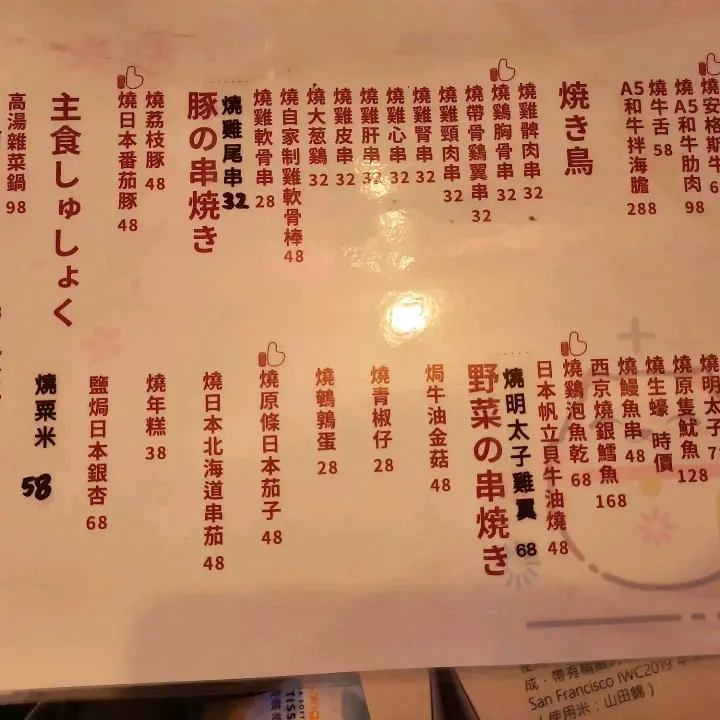 燒安格斯牛 6
燒A5和牛肋肉 98
燒牛舌 58
A5和牛拌海膽 288
焼き鳥
燒雞髀肉串 32
燒鷄胸骨串 32
燒帶骨鷄翼串 32
燒雞頸肉串 32
燒雞腎串 32
燒雞心串 32
燒雞肝串 32
燒雞皮串 32
燒大葱鷄 32
燒自家制雞軟骨棒 48
燒雞軟骨串 28
燒雞尾串 32
豚の串焼き
燒荔枝豚 48
燒日本番茄豚 48
主食しゅしょく
高湯雜菜鍋 98
燒明太子 7
燒原隻魷魚 128
燒生蠔 時價
燒鰻魚串 48
西京燒銀鱈魚 168
燒鷄泡魚乾 68
日本帆立貝牛油燒 48
燒明太子雞翼 68
野菜の串焼き
焗牛油金菇 48
燒青椒仔 28
燒鵪鶉蛋 28
燒原條日本茄子 48
燒日本北海道串茄 48
燒年糕 38
鹽焗日本銀杏 68
燒粟米 58
成・帶有
San Francisco IWC2019
使用米：山田錦）